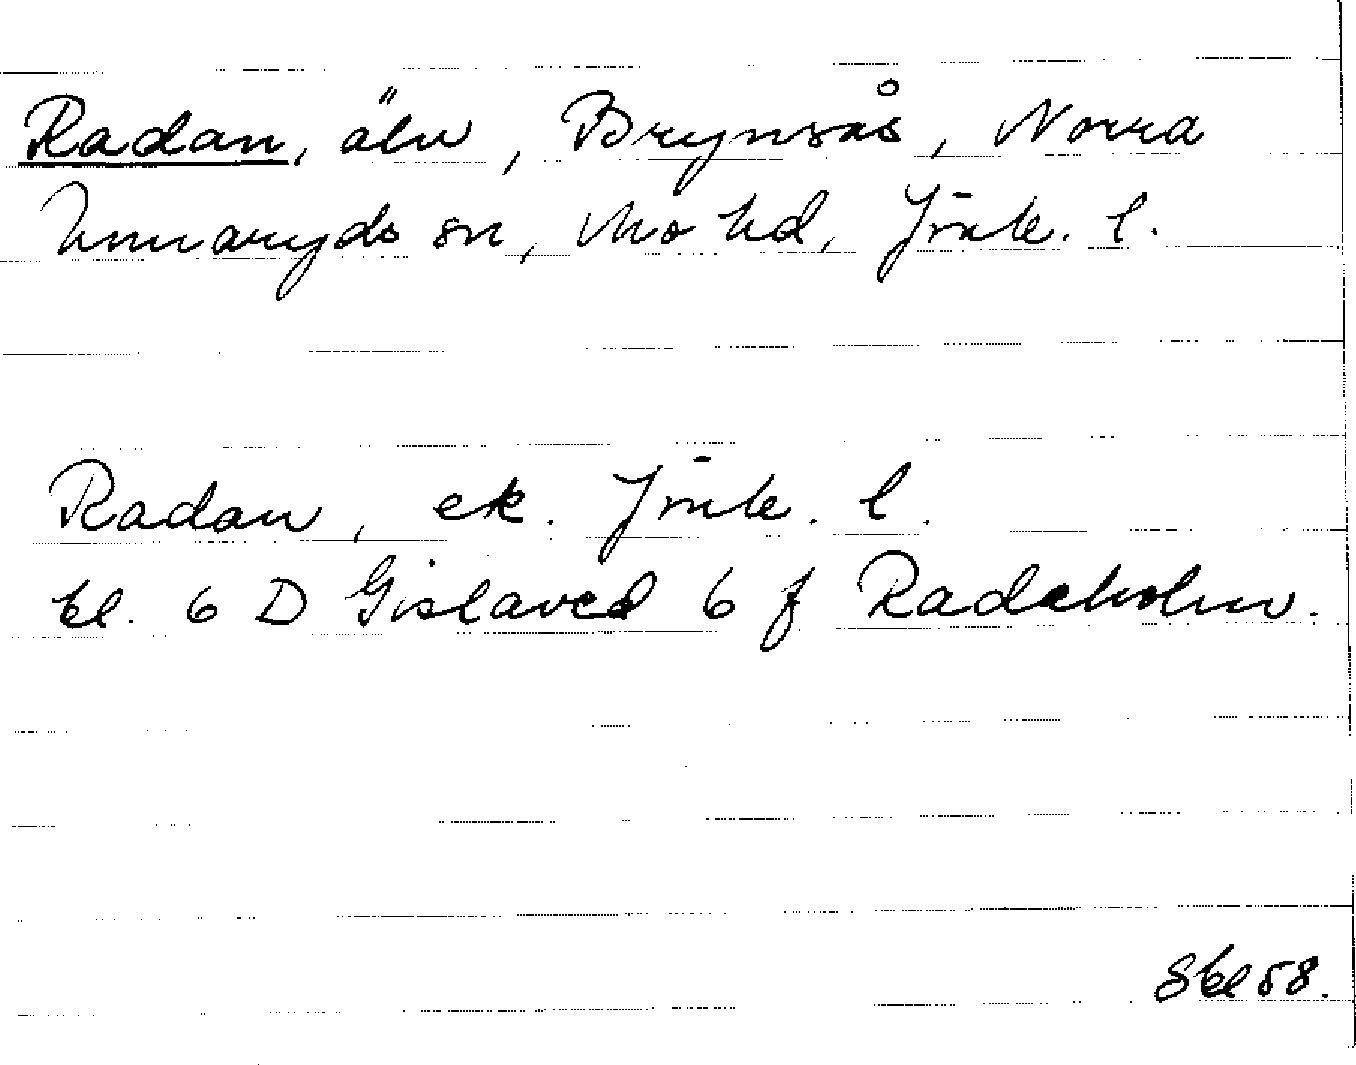 Radan, älv, Brynsås, Norra
Unnaryds sn, Mo hd, Jönk. l.
Radan, ek. Jönk. l.
bl. 6 D Gislaved 6 f Radeholm.